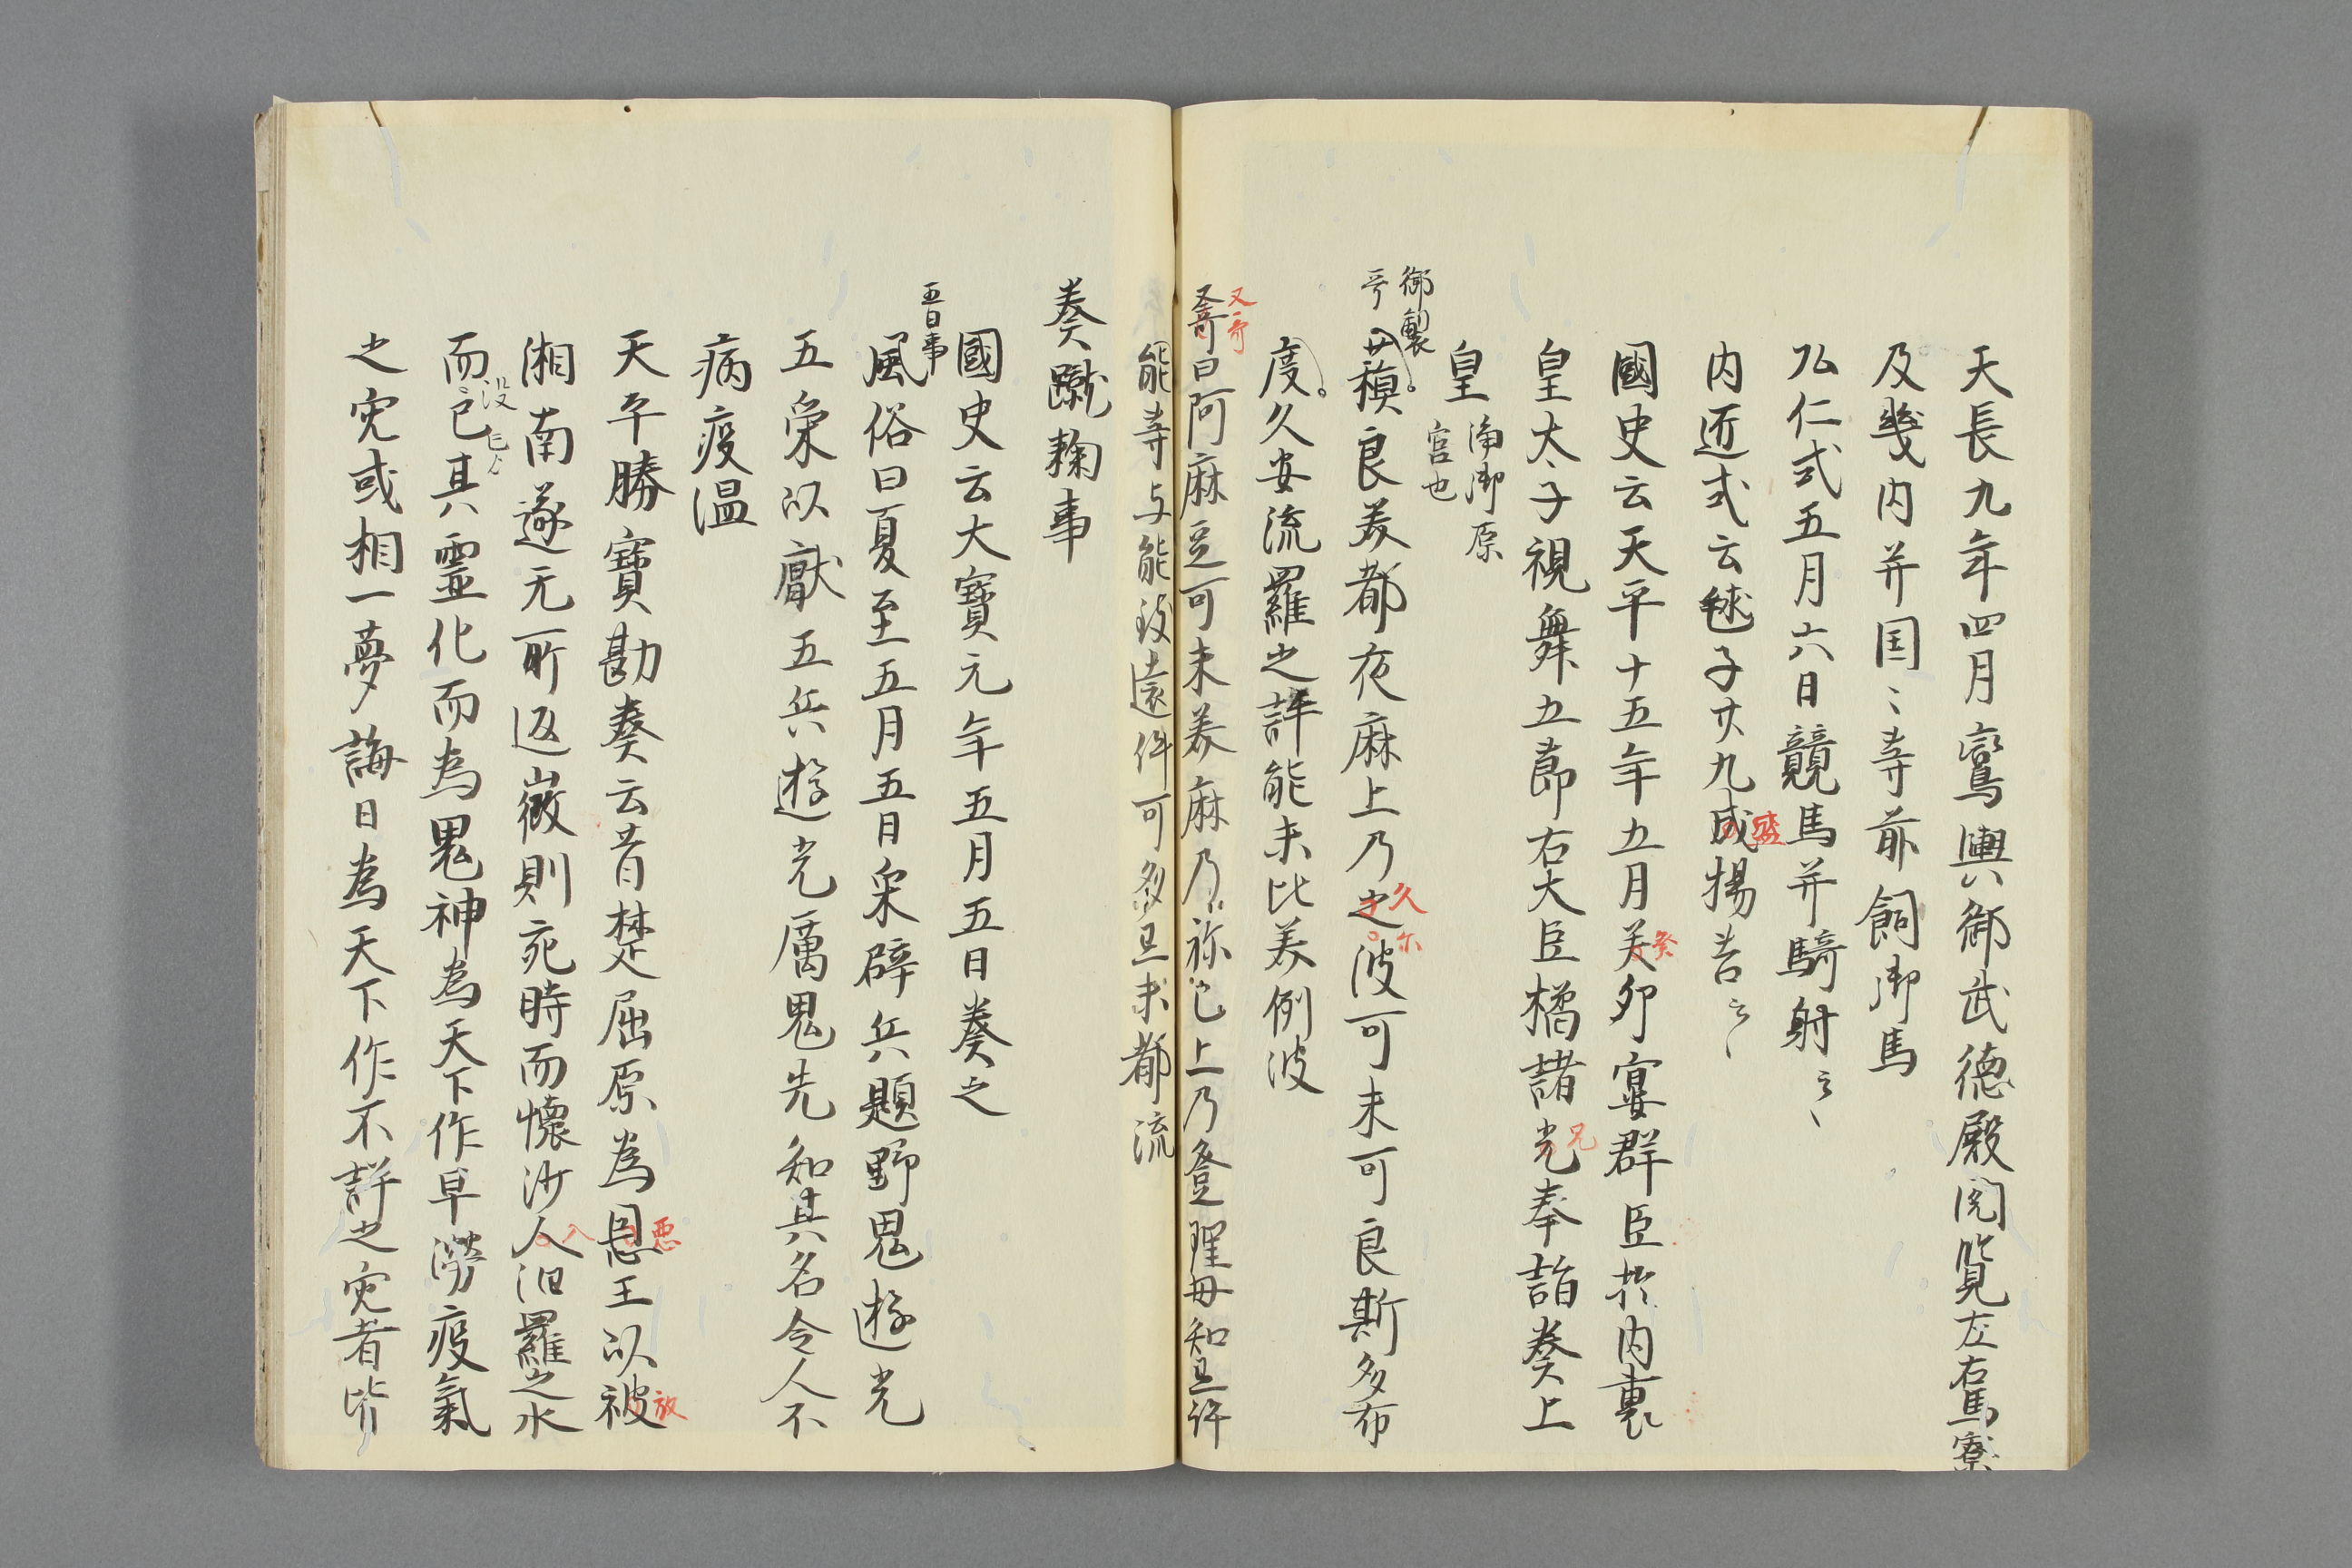 天長九年四月鸞輿御武德殿閲覧左右馬寮
及幾内并国々寺前飼御馬
弘仁式五月六日競馬并騎射云々
内近式云毬子廿九成揚土云々
盛
國史云天平十五年五月美夘宴群臣於内裏
癸
皇太子視舞五節右大臣橘諸光奉詣奏上
兄
皇
浄御原
宮也
御製
哥
蘓良美都夜麻上乃之波可未可良斯多布
久
尓
度久安流羅之許能末比美例波
又哥
又哥曰阿麻豆可未美麻乃弥己上乃登理毋知弖許
能等与能致遠伴可多弖末都流
奏蹴鞠事
國史云大寶元年五月五日奏之
五日事
風俗曰夏至五月五日采辟兵題野鬼遊光
五采以獻五兵遊光厲鬼先知其名令人不
病疫温
天平勝寶勘奏云昔楚屈原為恩王以被
悪
放
湘南遂无所返徴則死時而懷沙人汨羅之水
入
而已其靈化而為鬼神為天下作旱澇疫氣
没
之灾或相一夢誨曰為天下作不詳之灾者皆